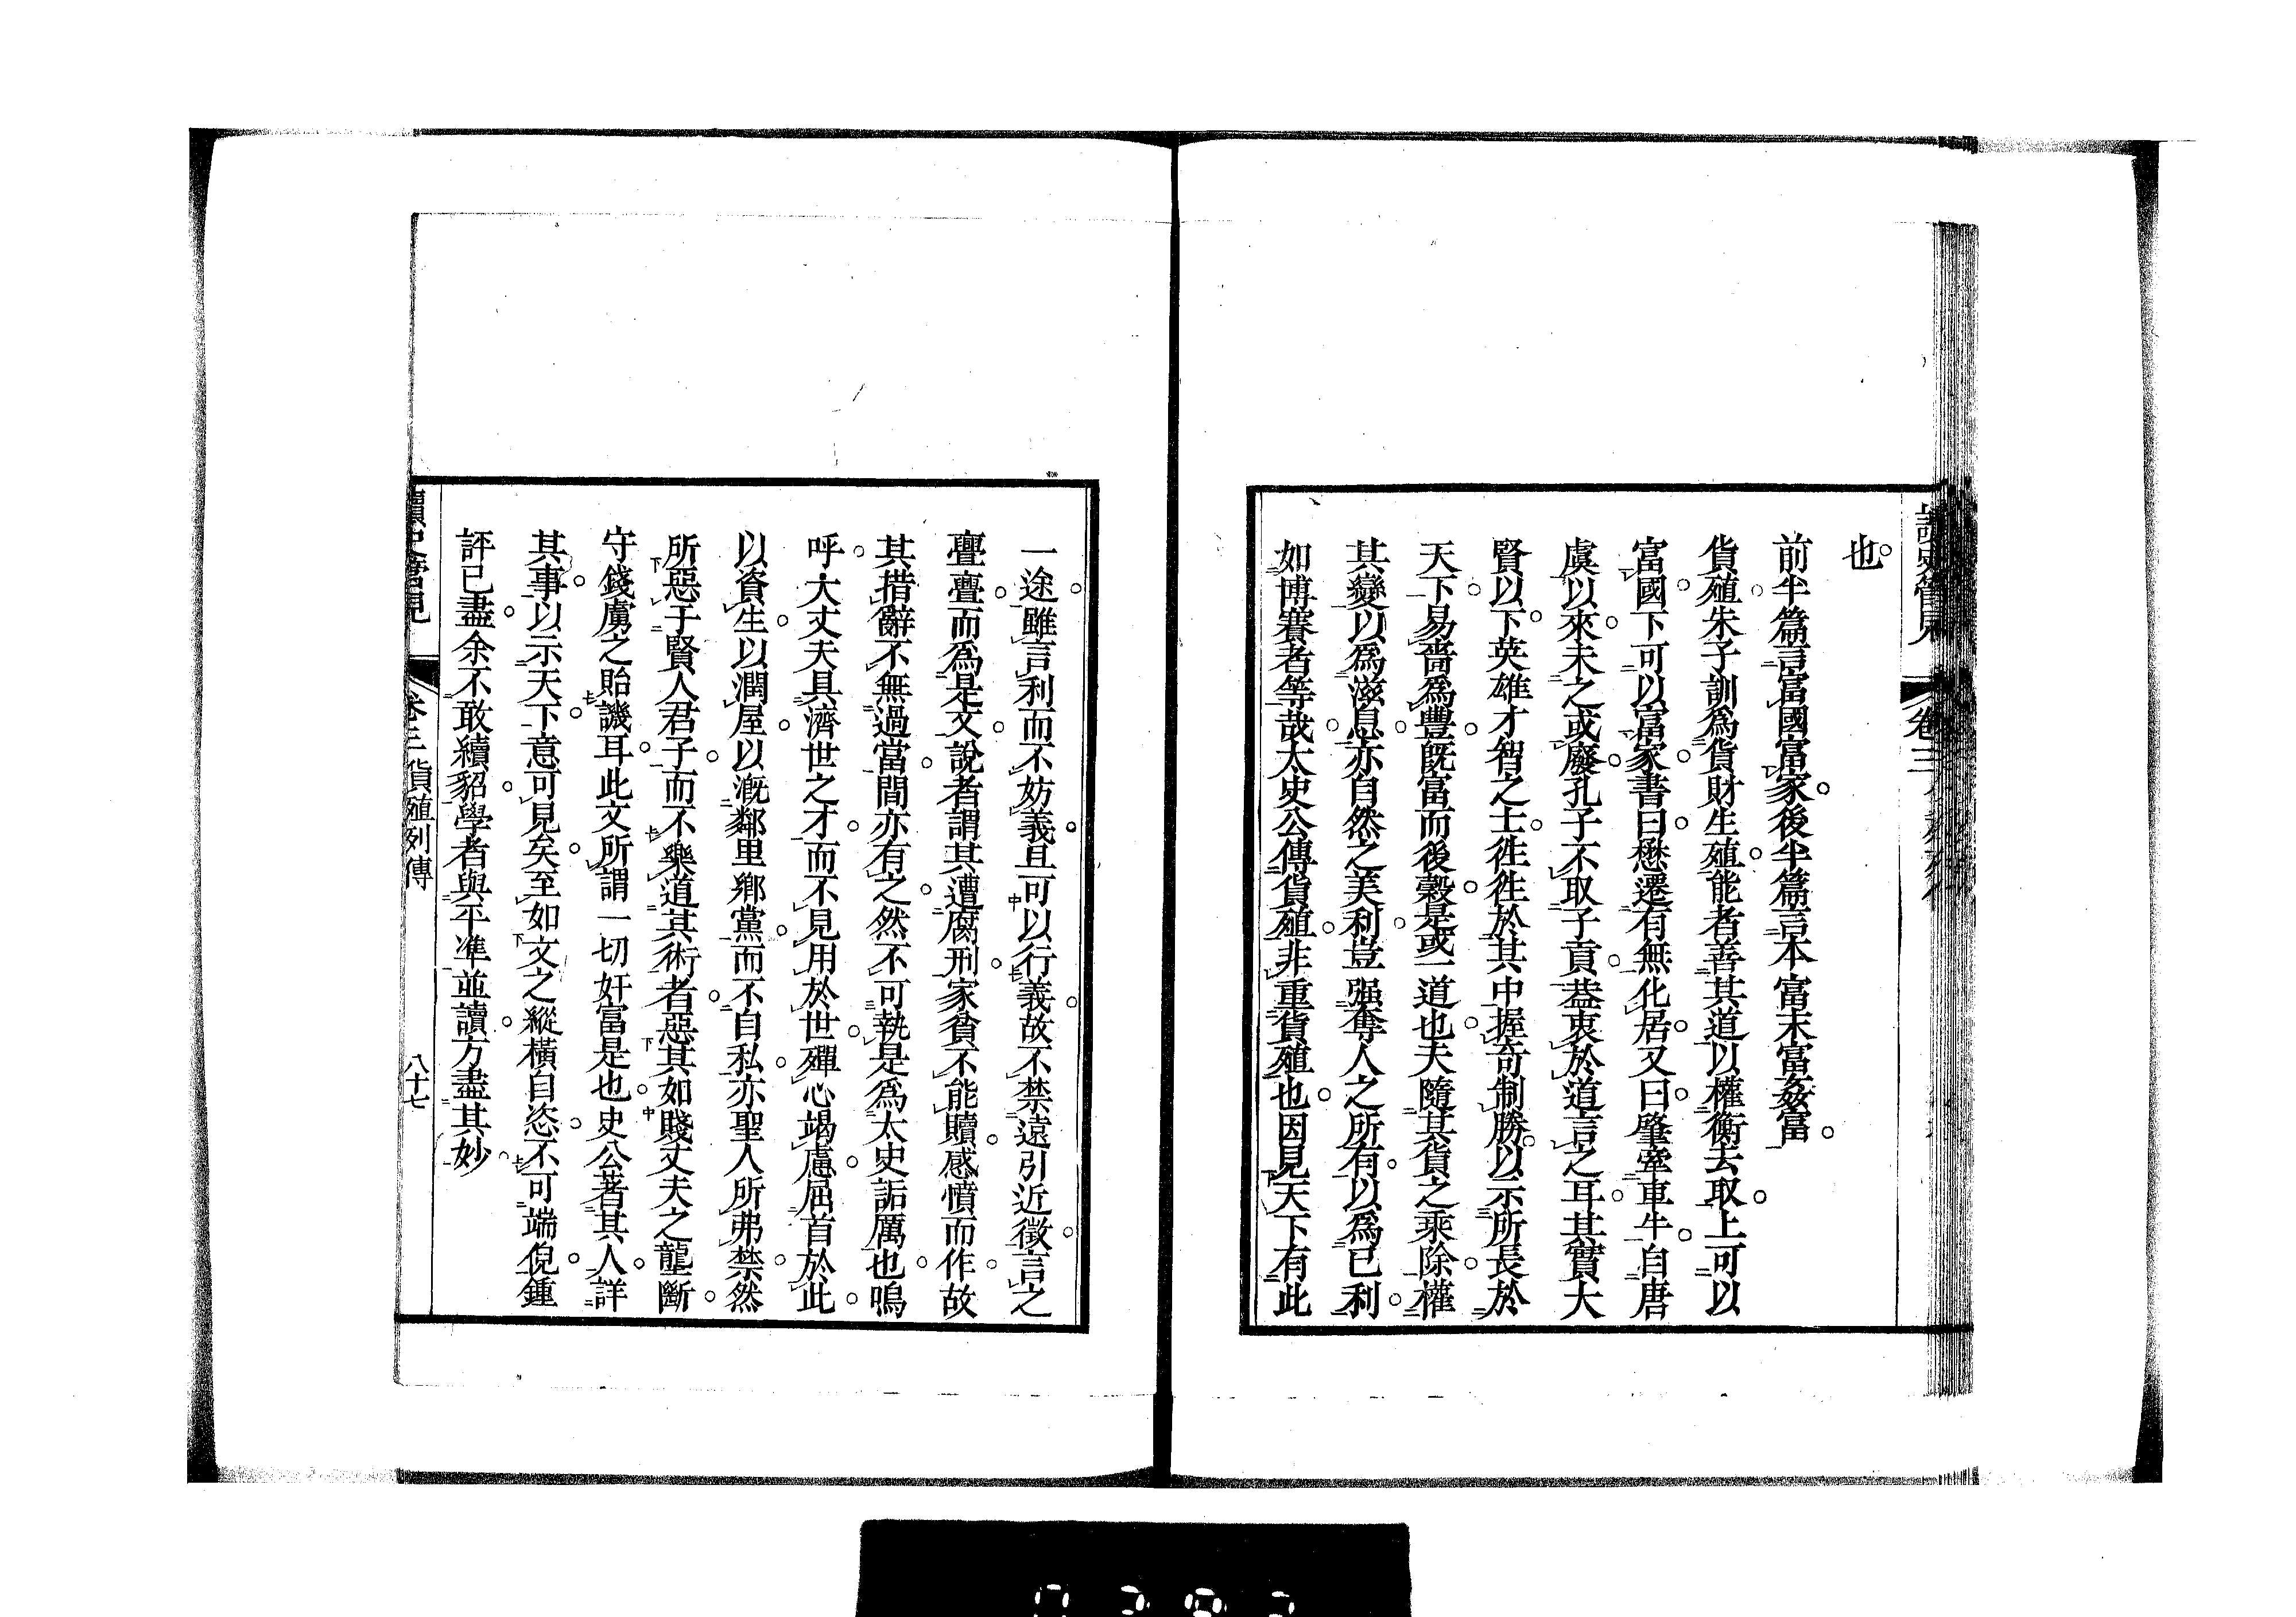 讀史管見 卷三
也
前半篇言富國富家後半篇言本富末富姦富
貨殖朱子訓爲貨財生殖能者善其道以權衡去取上可以
富國下可以富家書曰懋遷有無化居又曰肇牽車牛自唐
虞以來未之或廢孔子不取子貢葢衷於道言之耳其實大
賢以下英雄才智之士徃徃於其中握奇制勝以示所長於
天下易嗇爲豐旣富而後穀是或一道也夫隨其貨之乘除權
其變以爲滋息亦自然之美利豈强奪人之所有以爲已利
如博賽者等哉太史公傳貨殖非重貨殖也因見天下有此
一途雖言利而不妨義且可以行義故不禁遠引近徵言之
亹亹而爲是文說者謂其遭腐刑家貧不能贖感憤而作故
其措辭不無過當間亦有之然不可執是爲太史詬厲也嗚
呼大丈夫具濟世之才而不見用於世殫心竭慮屈首於此
以資生以潤屋以漑鄰里鄉黨而不自私亦聖人所弗禁然
所惡于賢人君子而不樂道其術者惡其如賤丈夫之壟斷
守錢虜之貽譏耳此文所謂一切奸富是也史公著其人詳
其事以示天下意可見矣至如文之縱橫自恣不可端倪鍾
評已盡余不敢續貂學者與平準並讀方盡其妙
讀史管見 卷三 貨殖列傳 八十七